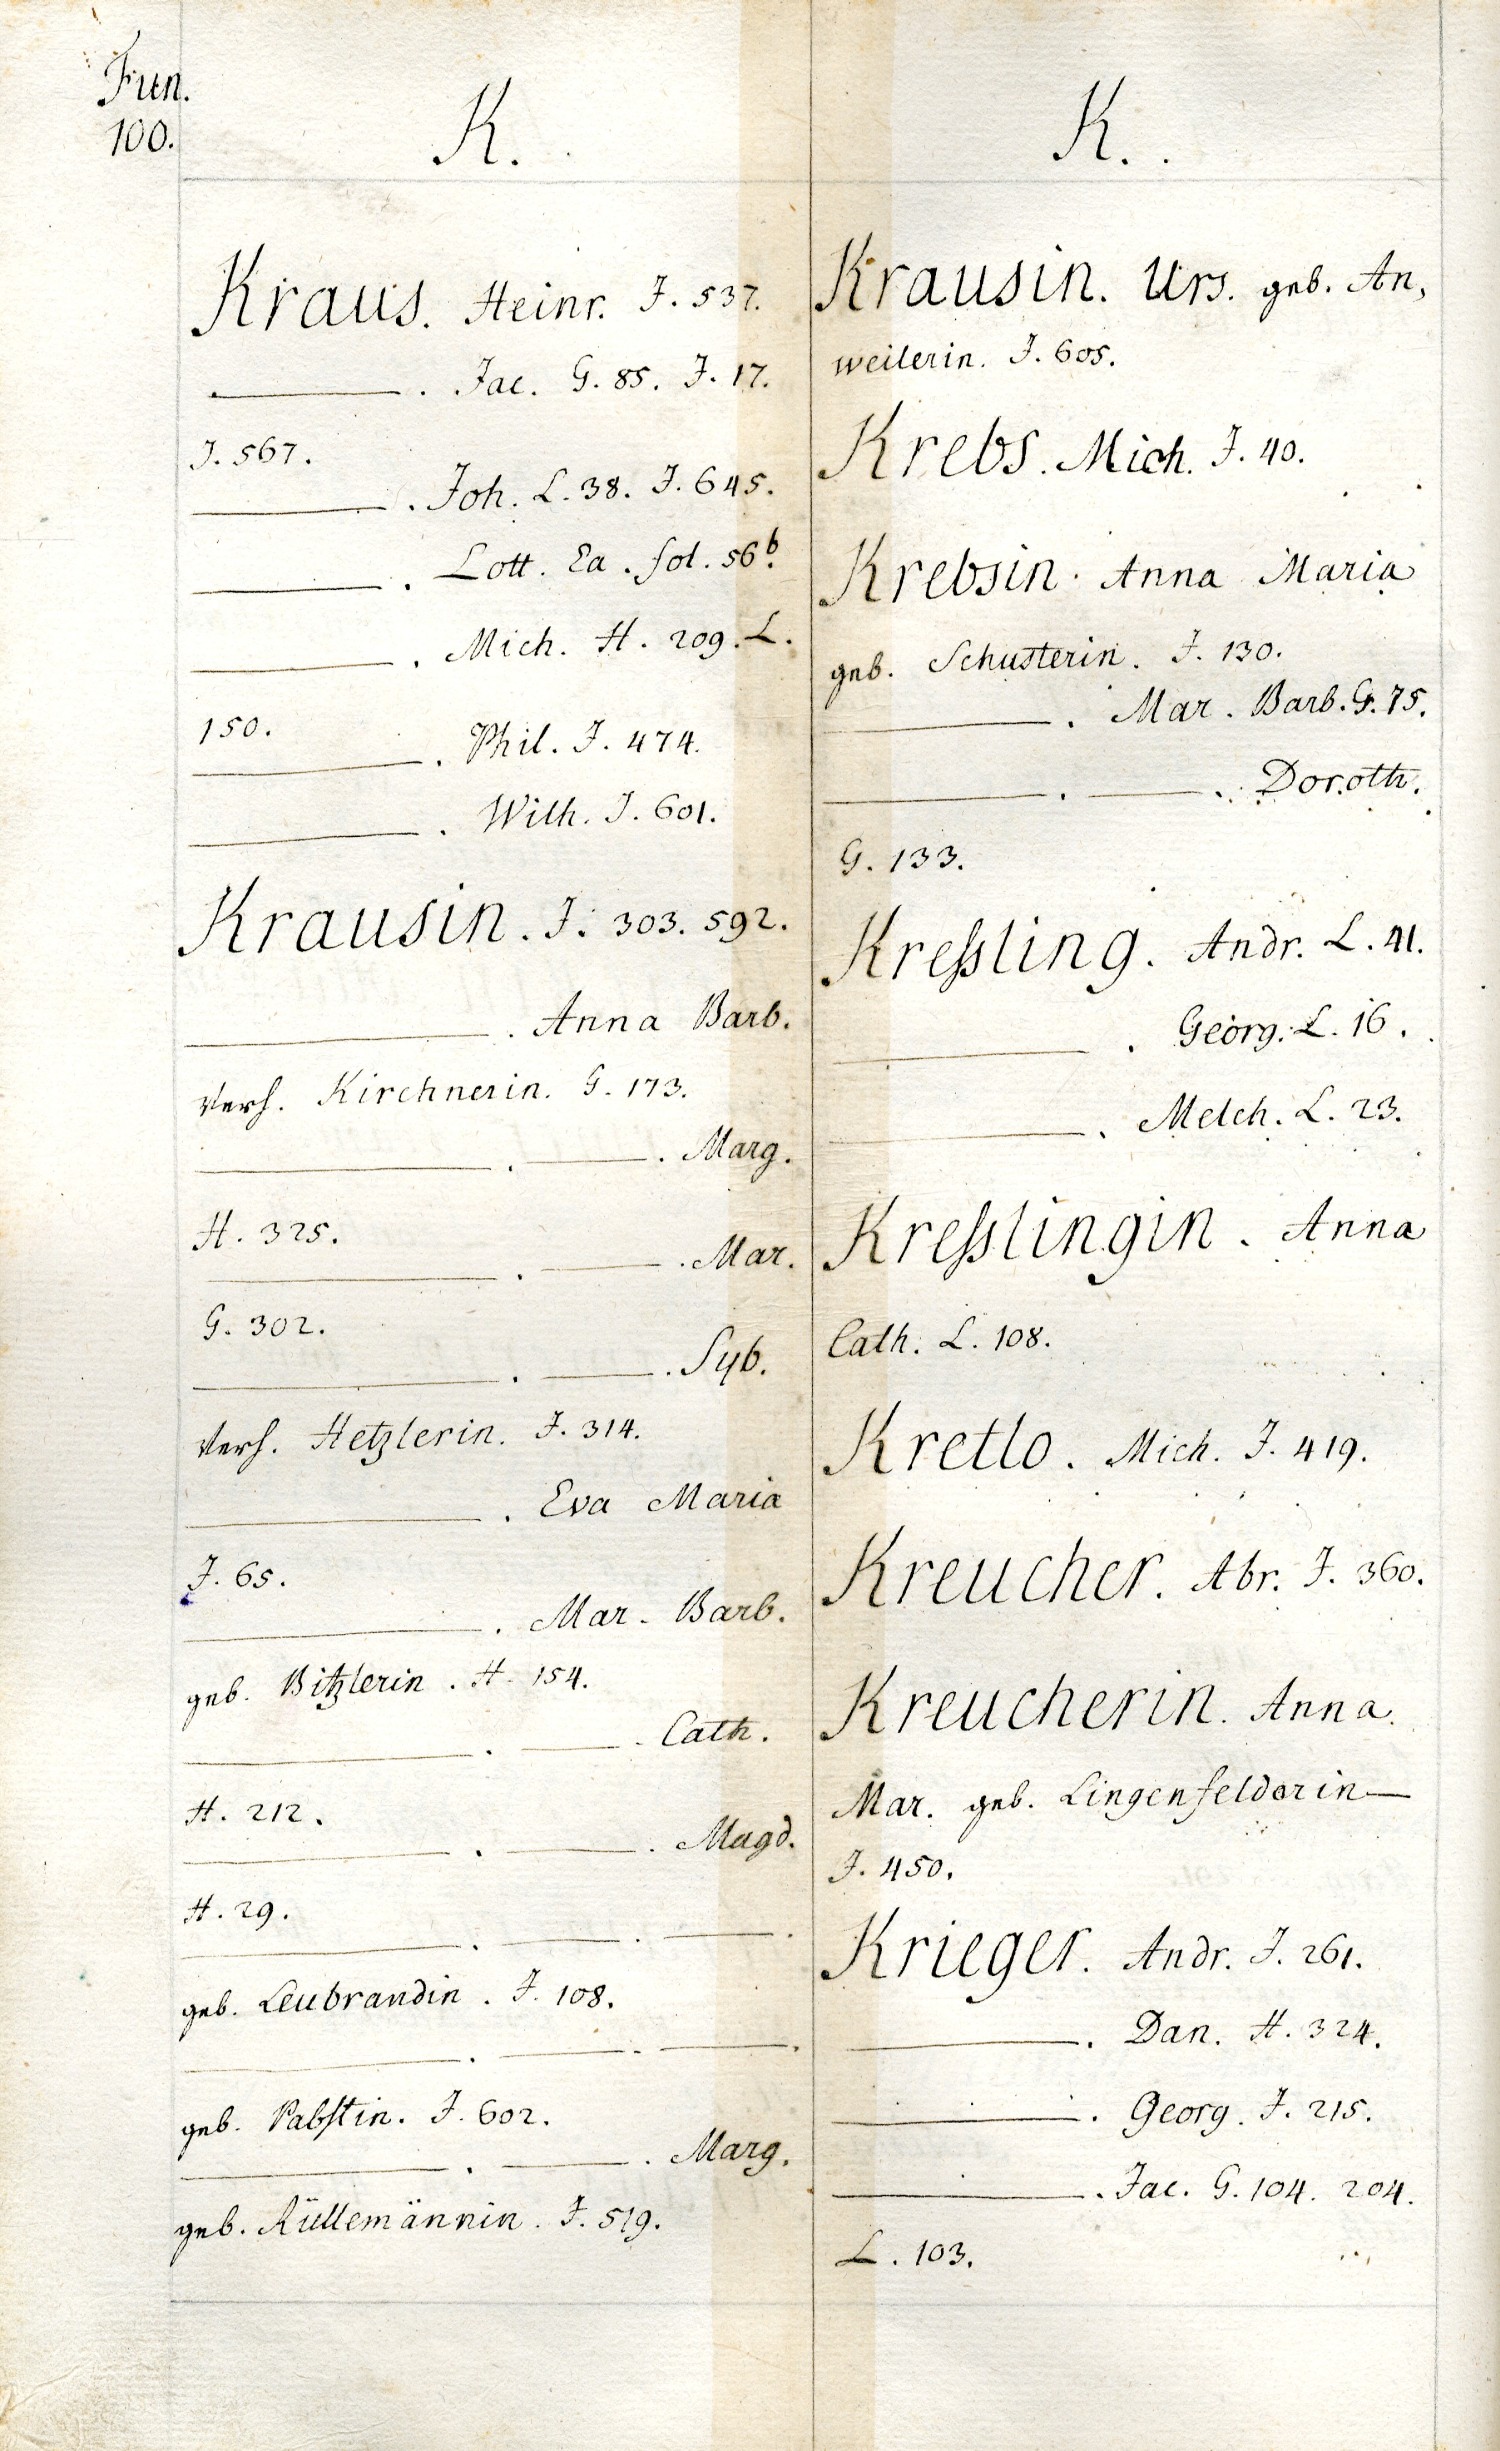 Fun.
100.
K.
Kraus. Heinr. J. 537.
———. Jac. G. 85. J. 17.
J. 567.
———. Joh. L. 38. J. 645.
———. Lott. Ea. fol. 56b.
———. Mich. H. 209. L.
150.
———. Phil. J. 474.
———. Wilh. J. 601.
Krausin. J. 303. 592.
———. Anna Barb.
verh. Kirchnerin. G. 173.
———. ———. Marg.
H. 325.
———. ———. Mar.
G. 302.
———. ———. Syb.
verh. Hetzlerin. J. 314.
———. Eva Maria
J. 65.
———. Mar. Barb.
geb. Bitzlerin. H. 154.
———. ———. Cath.
H. 212.
———. ———. Magd.
H. 29.
———. ———. ———.
geb. Leubrandin. J. 108.
———. ———. ———.
geb. Pabstin. J. 602.
———. ———. Marg.
geb. Rüllemännin. J. 519.
K.
Krausin. Urs. geb. An,
weilerin. J. 605.
Krebs. Mich. J. 40.
Krebsin. Anna Maria
geb. Schusterin. J. 130.
———. Mar. Barb. G. 75.
———. ———. Doroth.
G. 133.
Kreſsling. Andr. L. 41.
———. Georg. L. 16.
———. Melch. L. 23.
Kreſslingin. Anna
Cath. L. 108.
Kretlo. Mich. J. 419.
Kreucher. Abr. J. 360.
Kreucherin. Anna
Mar. geb. Lingenfelderin—
J. 450.
Krieger. Andr. J. 261.
———. Dan. H. 324.
———. Georg. J. 215.
———. Jac. G. 104. 204.
L. 103.